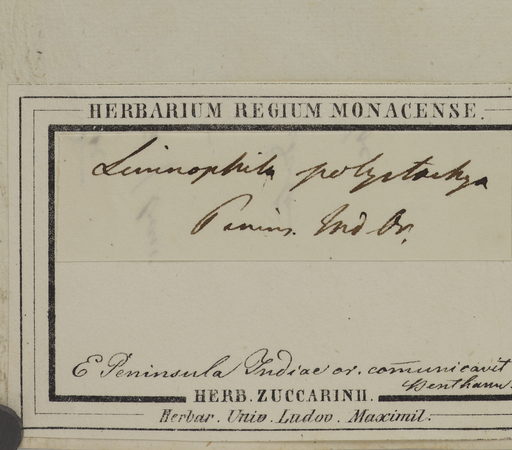 HERBARIUM REGIUM MONACENSE.
Limnophila polystachya
Penins. Ind Or.
E Peninsula Indiae or. com̄unicavit
Bentham.
HERB. ZUCCARINII.
Herbar. Univ. Ludov. Maximil.